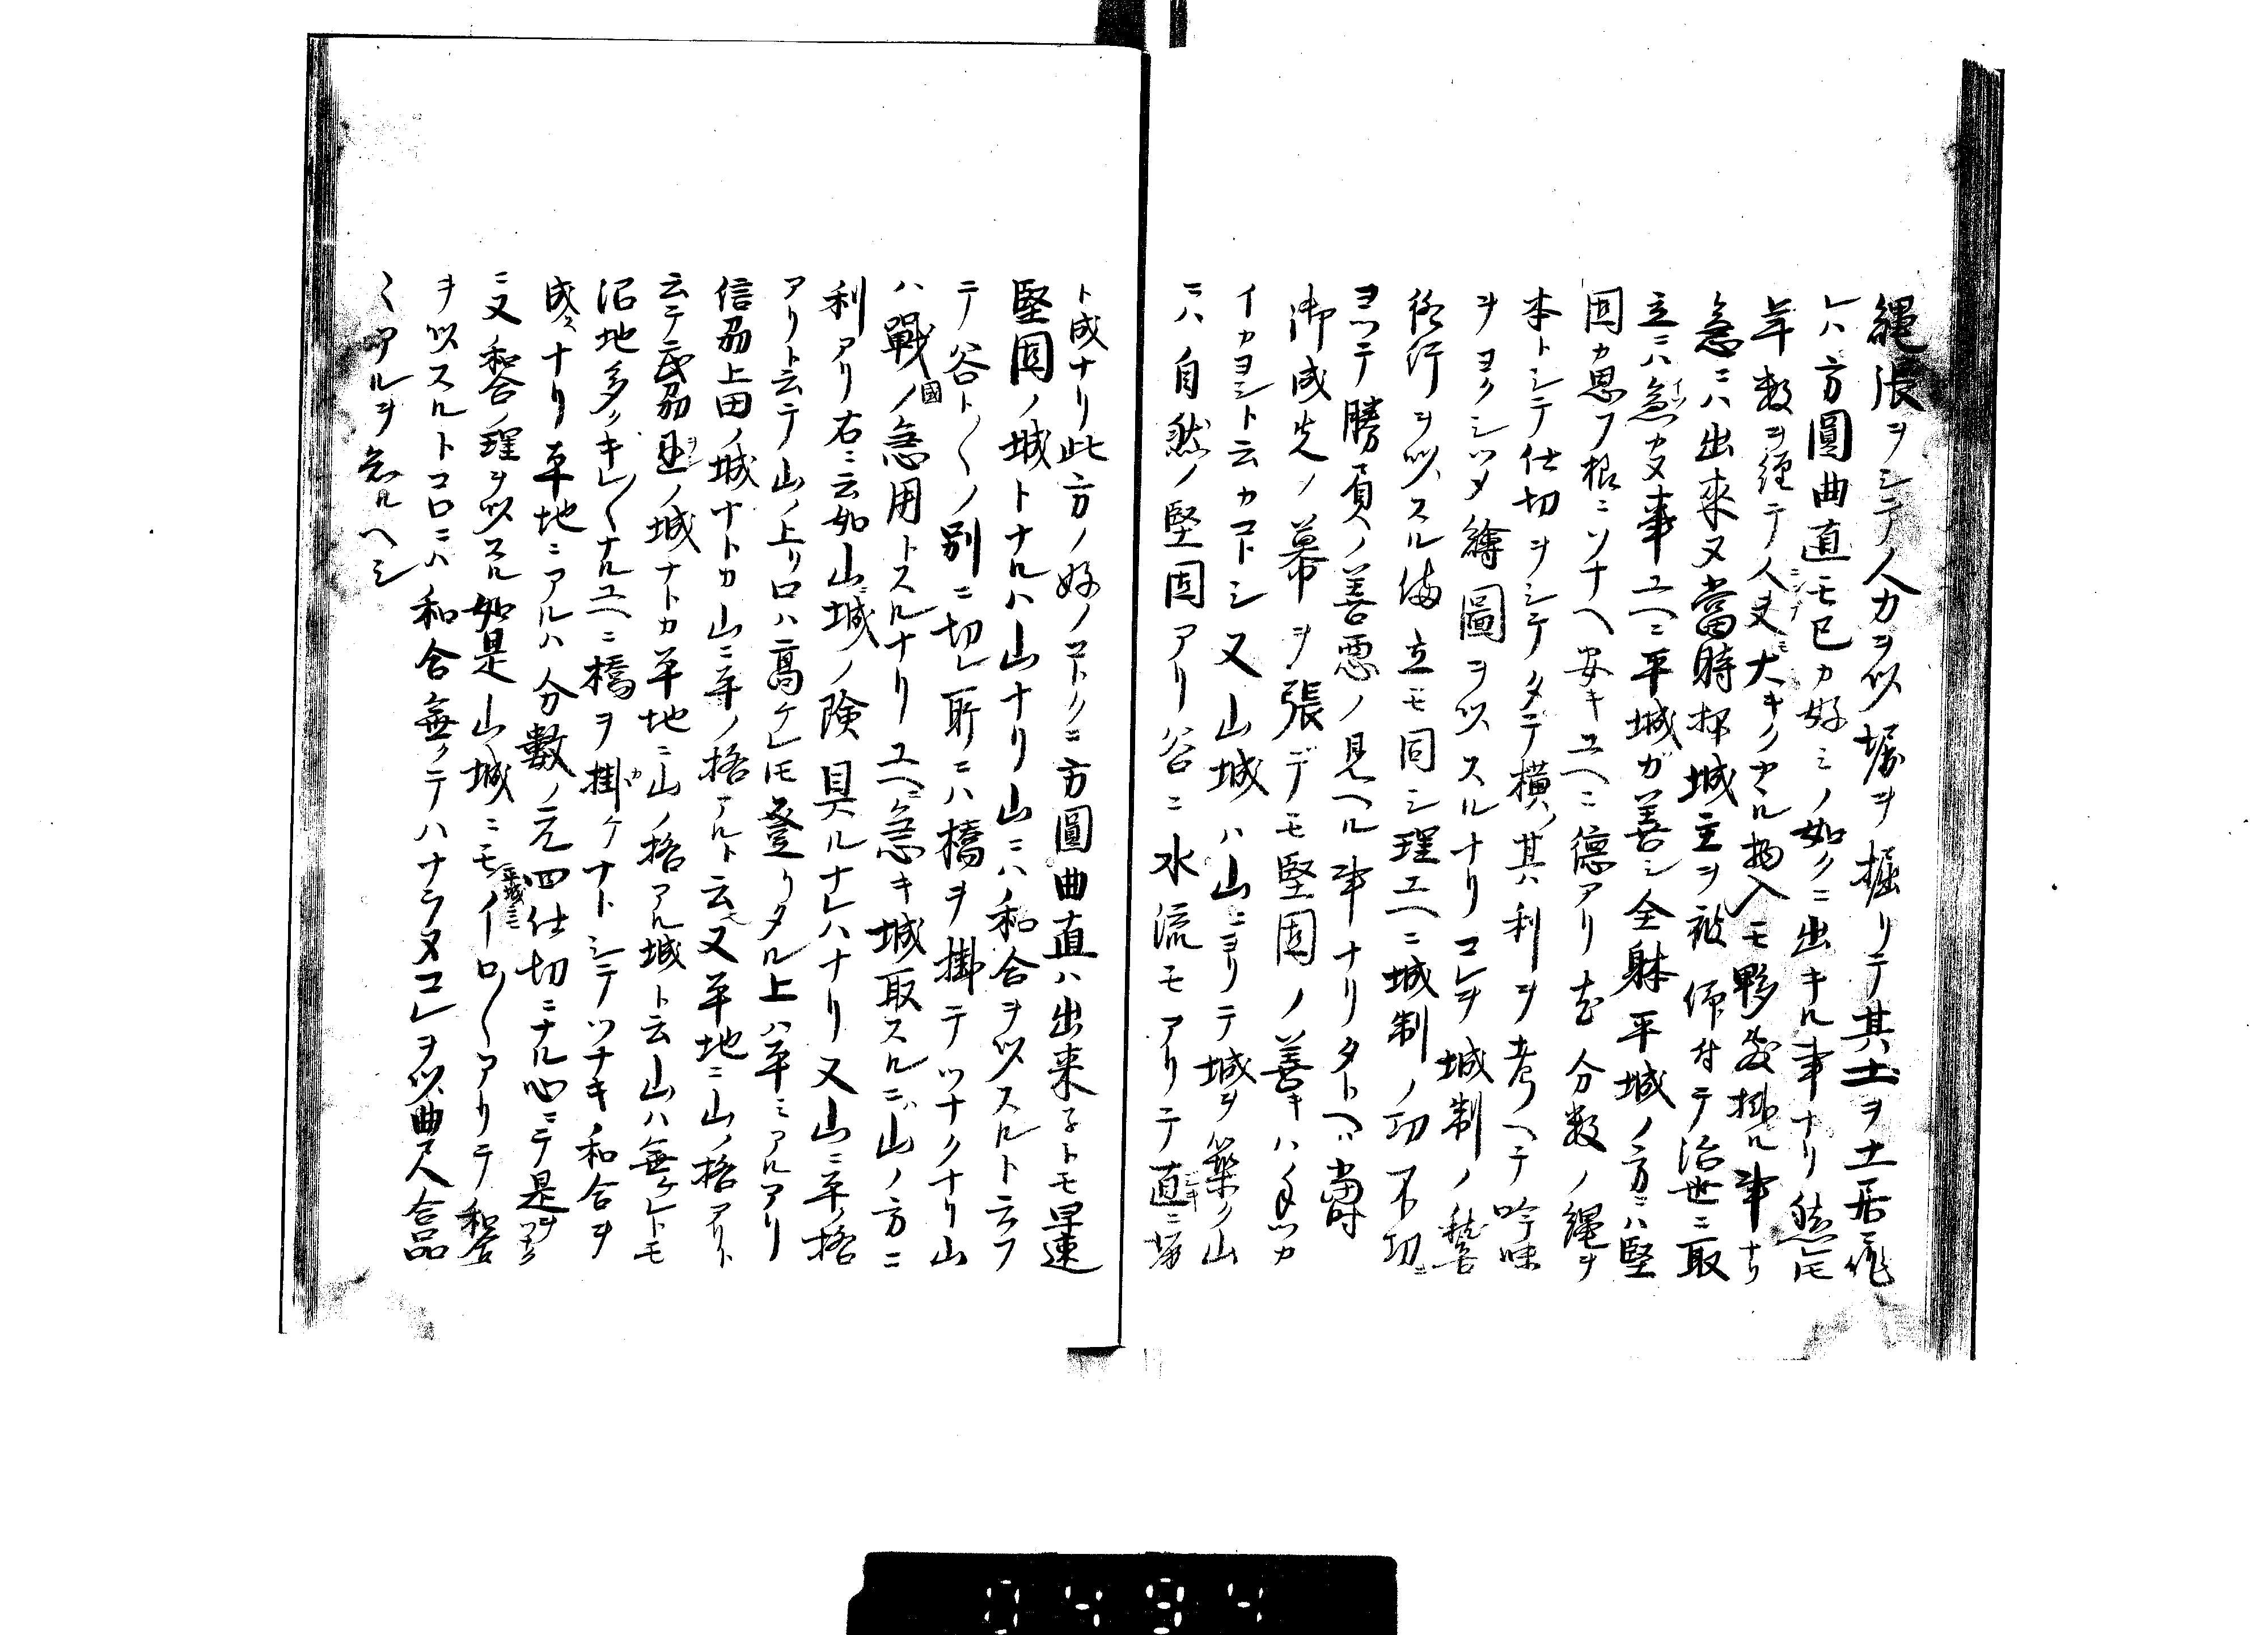 縄張ヲシテ人力ヲ以堀ヲ掘リテ其土ヲ土居ニ作
レハ方圓曲直モ已カ好ミノ如クニ出キル事ナリ然レ𪜈
年数ヲ経テ人夫大キクカヽル物入モ夥敷掛ル事ナリ
急ニハ出来ヌ當時抔城主ヲ被仰付テ治世ニ取
立ニハ急カヌ事ユヘニ平城ガ善シ全躰平城ノ方ニハ堅
固カ思フ根ニソナヘ安キユヘニ德アリ 分数ノ縄ヲ
本トシテ仕切ヲシテタテ横ノ其ハ利ヲ考ヘテ吟味
ヲヨクシツメ繪圖ヲ以スルナリコレヲ城制ノ
行ヲ以スル備立モ同シ理ユヘニ城制ノ功不功ニ
ヨツテ勝負ノ善悪ノ見ヘル事ナリタトヘハ當時
御成先ノ幕ヲ張デモ堅固ノ善キハ手ツカ
イカヨシト云カコトシ又山城ハ山ニヨリテ城ヲ築ク山
ニハ自然ノ堅固アリ谷ニ水流モアリテ直ニ堀
ト成ナリ此方ノ好ノコトクニ方圓曲直ハ出来子トモ早速
堅固ノ城トナルハ山ナリ山ニハ和合ヲ以スルト云フ
テ谷ト〱ノ別ニ切レ所ニハ橋ヲ掛テツナクナリ山
ハ戰國ノ急用トスルナリユヘニ急キ城取スルニハ山ノ方ニ
利アリ右ニ云如山城ノ険具ルナレハナリ又山ニ平ノ格
アリト云テ山ノ上リ口ハ高ケレ𪜈登リタル上ハ平ミアルアリ
信刕上田ノ城ナトカ山ニ平ノ格アルト云又平地ニ山ノ格アリト
云テ武刕忍ノ城ナトカ平地ニ山ノ格アル城ト云山ハ無ケレトモ
沼地多クキレ〱ナルユヘニ橋ヲ掛ケナトシテツナキ和合ヲ
成スナリ平地ニアルハ分數ノ元四仕切ニナル心ニテ是ヲ
ニ又和合ノ理ヲ以スル如是山城ニモ平城ニモイロ〱アリテ和合
ヲ以スルトコロニハ和合無クテハナラヌコレヲ以曲尺合品
〱アルヲ知ルヘシ